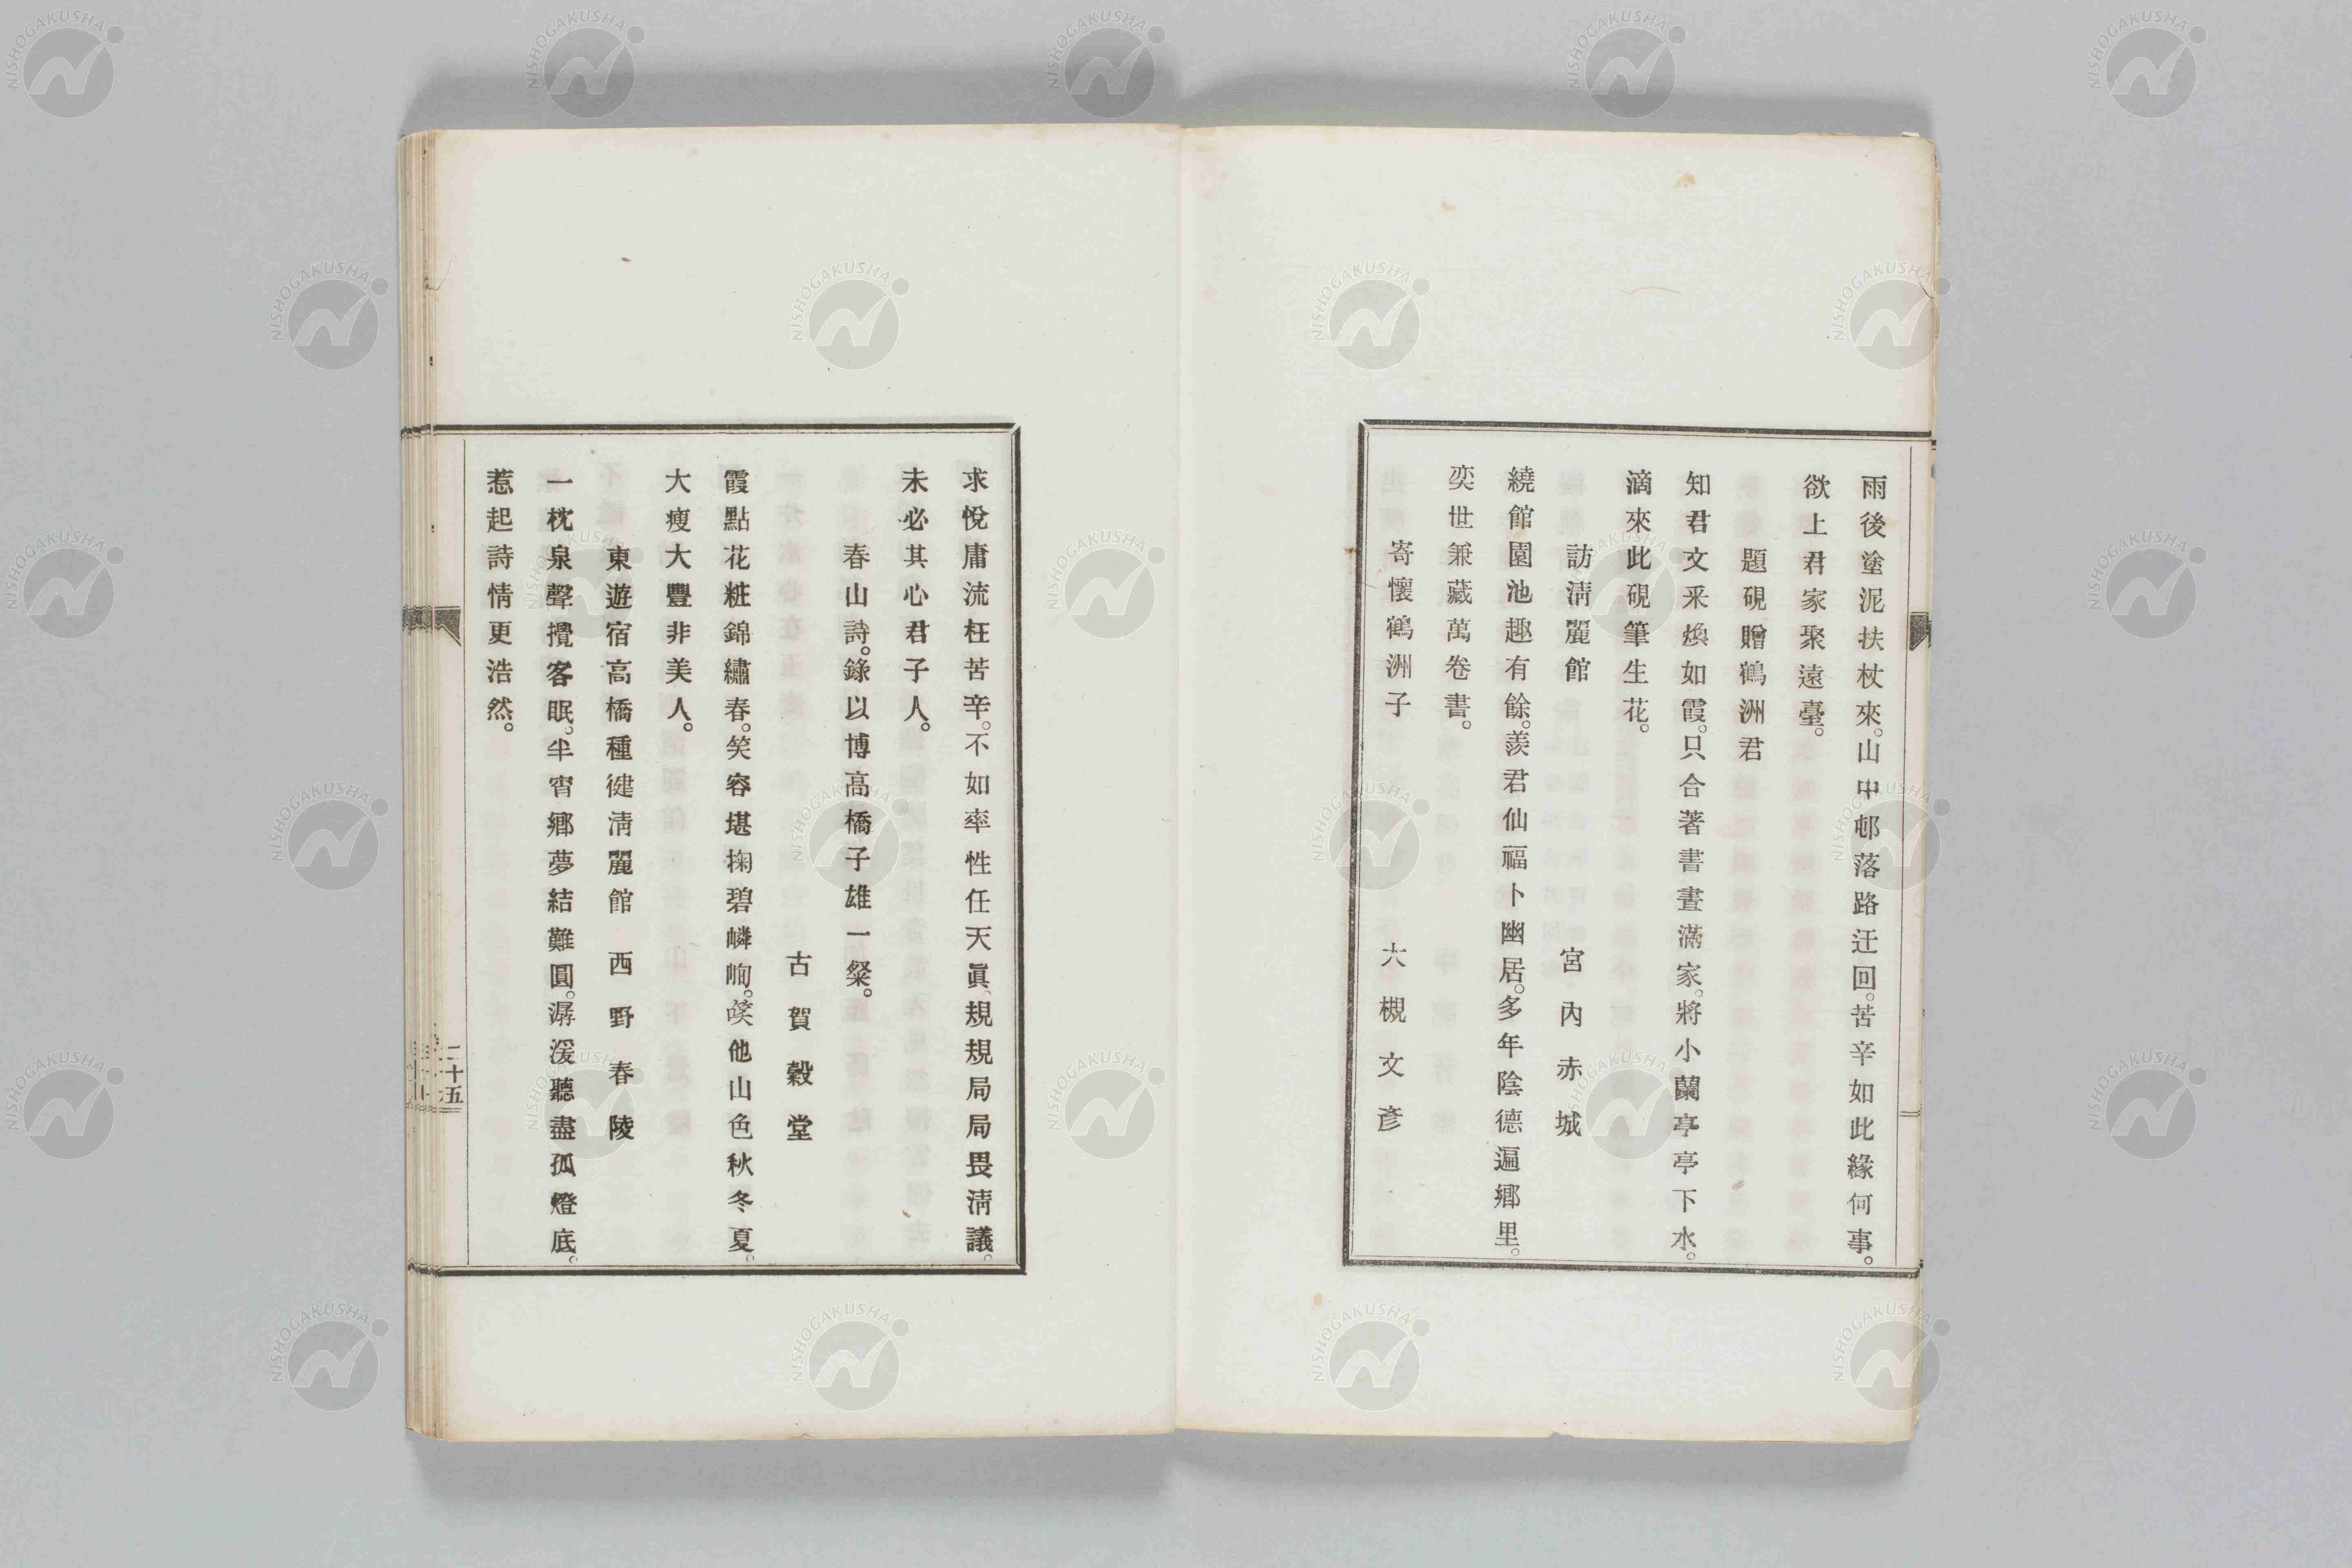 雨後塗泥扶杖來。山中邨落路迂回。苦辛如此緣何事。
欲上君家聚遠臺。
題硯贈鶴洲君
知君文釆煥如霞。只合著書晝滿家。將小蘭亭亭下水。
滴來此硯筆生花。
訪淸麗館 宮內赤城
繞館園池趣有餘。羨君仙福卜幽居。多年陰德遍鄉里。
奕世兼藏萬卷書。
寄懷鶴洲子 大槻文彥
求悅庸流枉苦辛。不如率性任天眞。規規局局畏淸議。
未必其心君子人。
春山詩。錄以博高橋子雄一粲。
古賀穀堂
霞點花粧錦繡春。笑容堪掬碧嶙峋。 他山色秋冬夏。
大瘦大豐非美人。
東遊宿高橋種徤淸麗館 西野春陵
一枕泉聲攪客眠。半宵鄉夢結難圓。潺湲聽盡孤燈底。
惹起詩情更浩然。
二十五
NISHOGAKUSHA